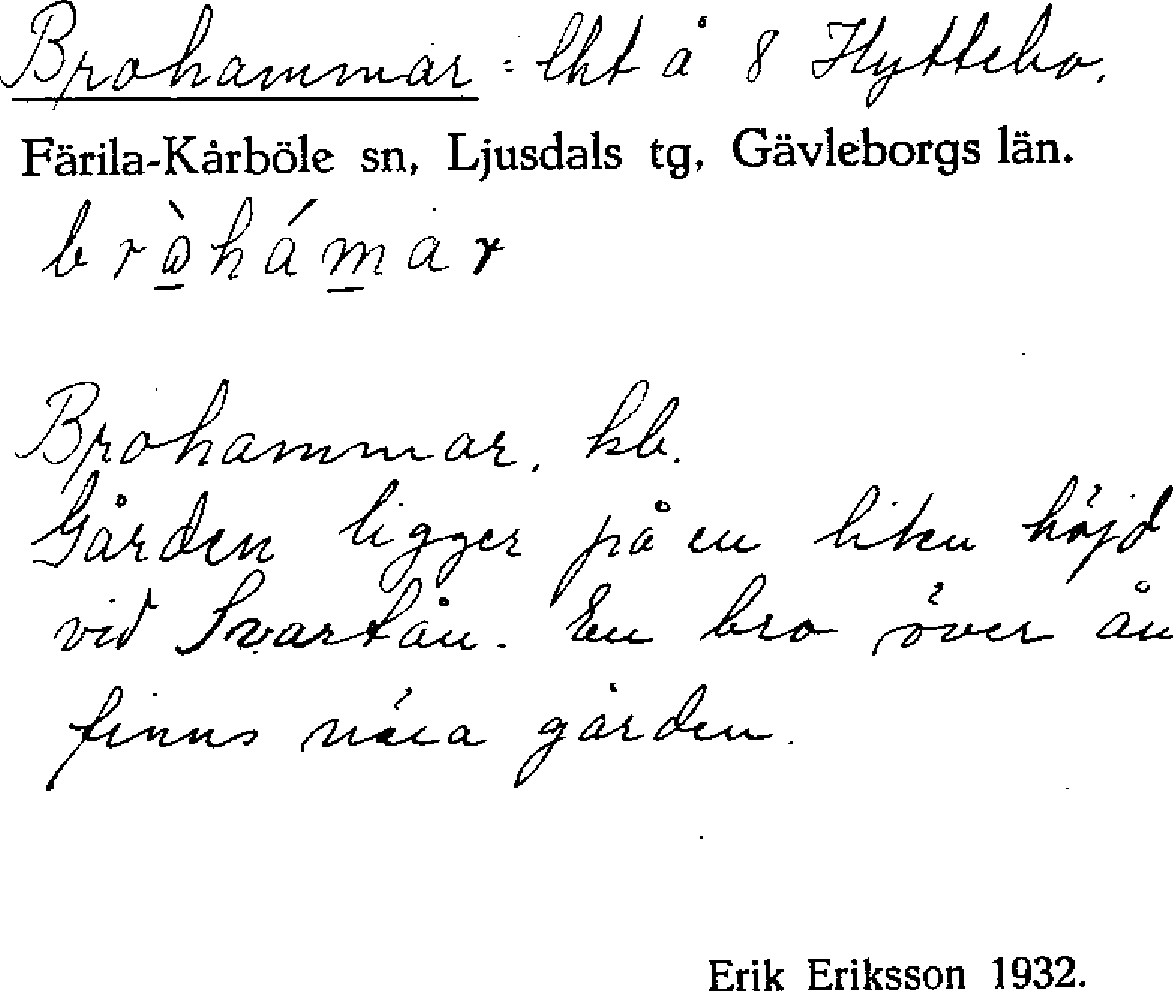 Brohammar = lht å 8 Hyttebo.
Färila-Kårböle sn, Ljusdals tg, Gävleborgs län.
bròhámar
Brohammar. kb.
Gården ligger på en liten höjd
vid Svartån. En bro över ån
finns nära gården.
Erik Eriksson 1932.